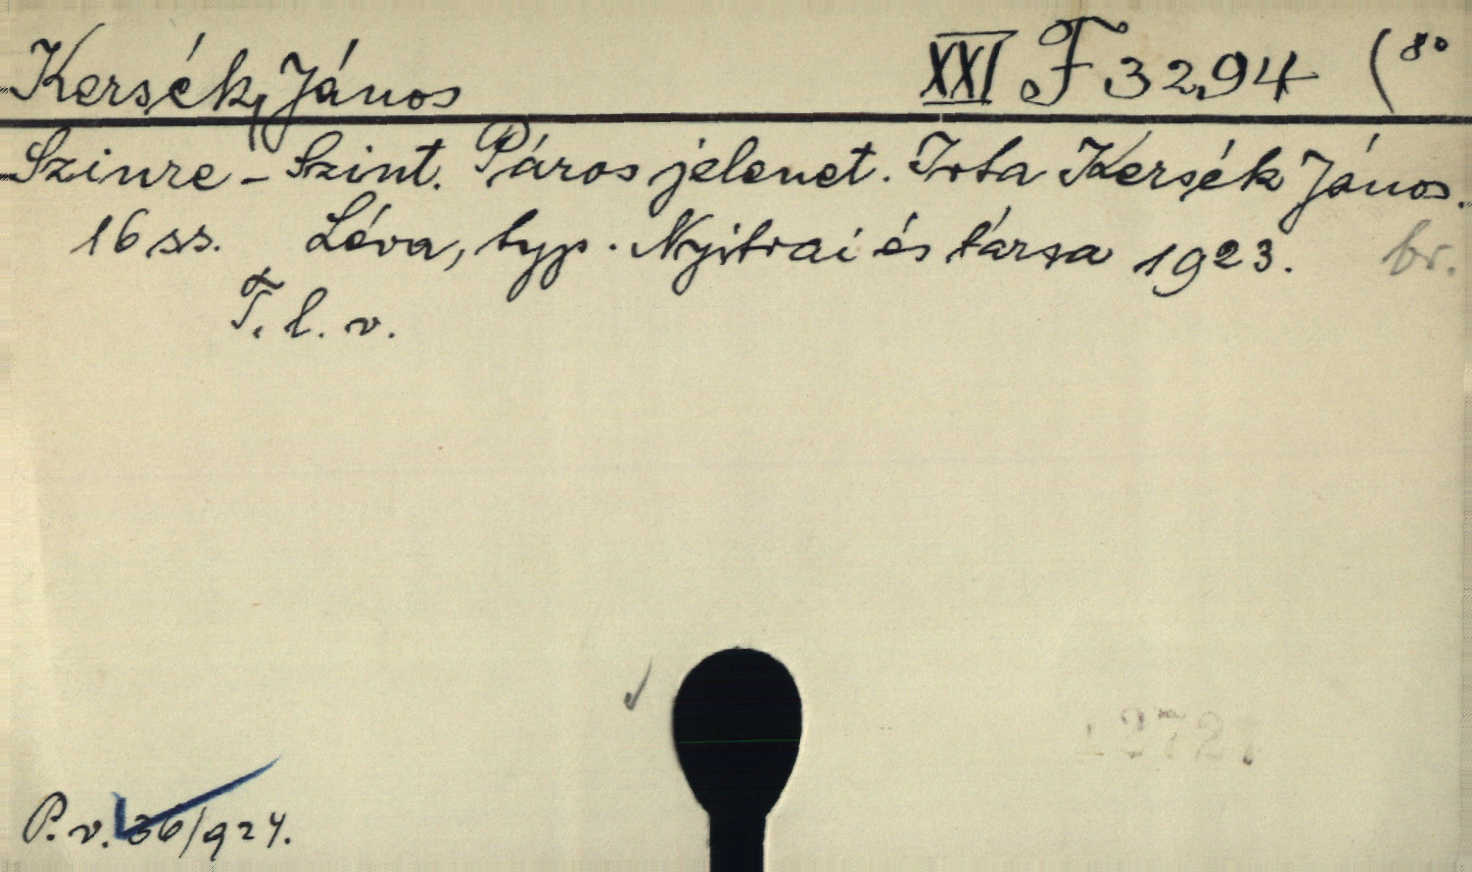 Kersék, János XXI F 3294 (8°
Szinre-Szint. Páros jelenet. Irta Kersék János.
16 ss. Léva, typ. Nyitrai és társa 1923. br.
T. l. v.
P. v. 36/924.